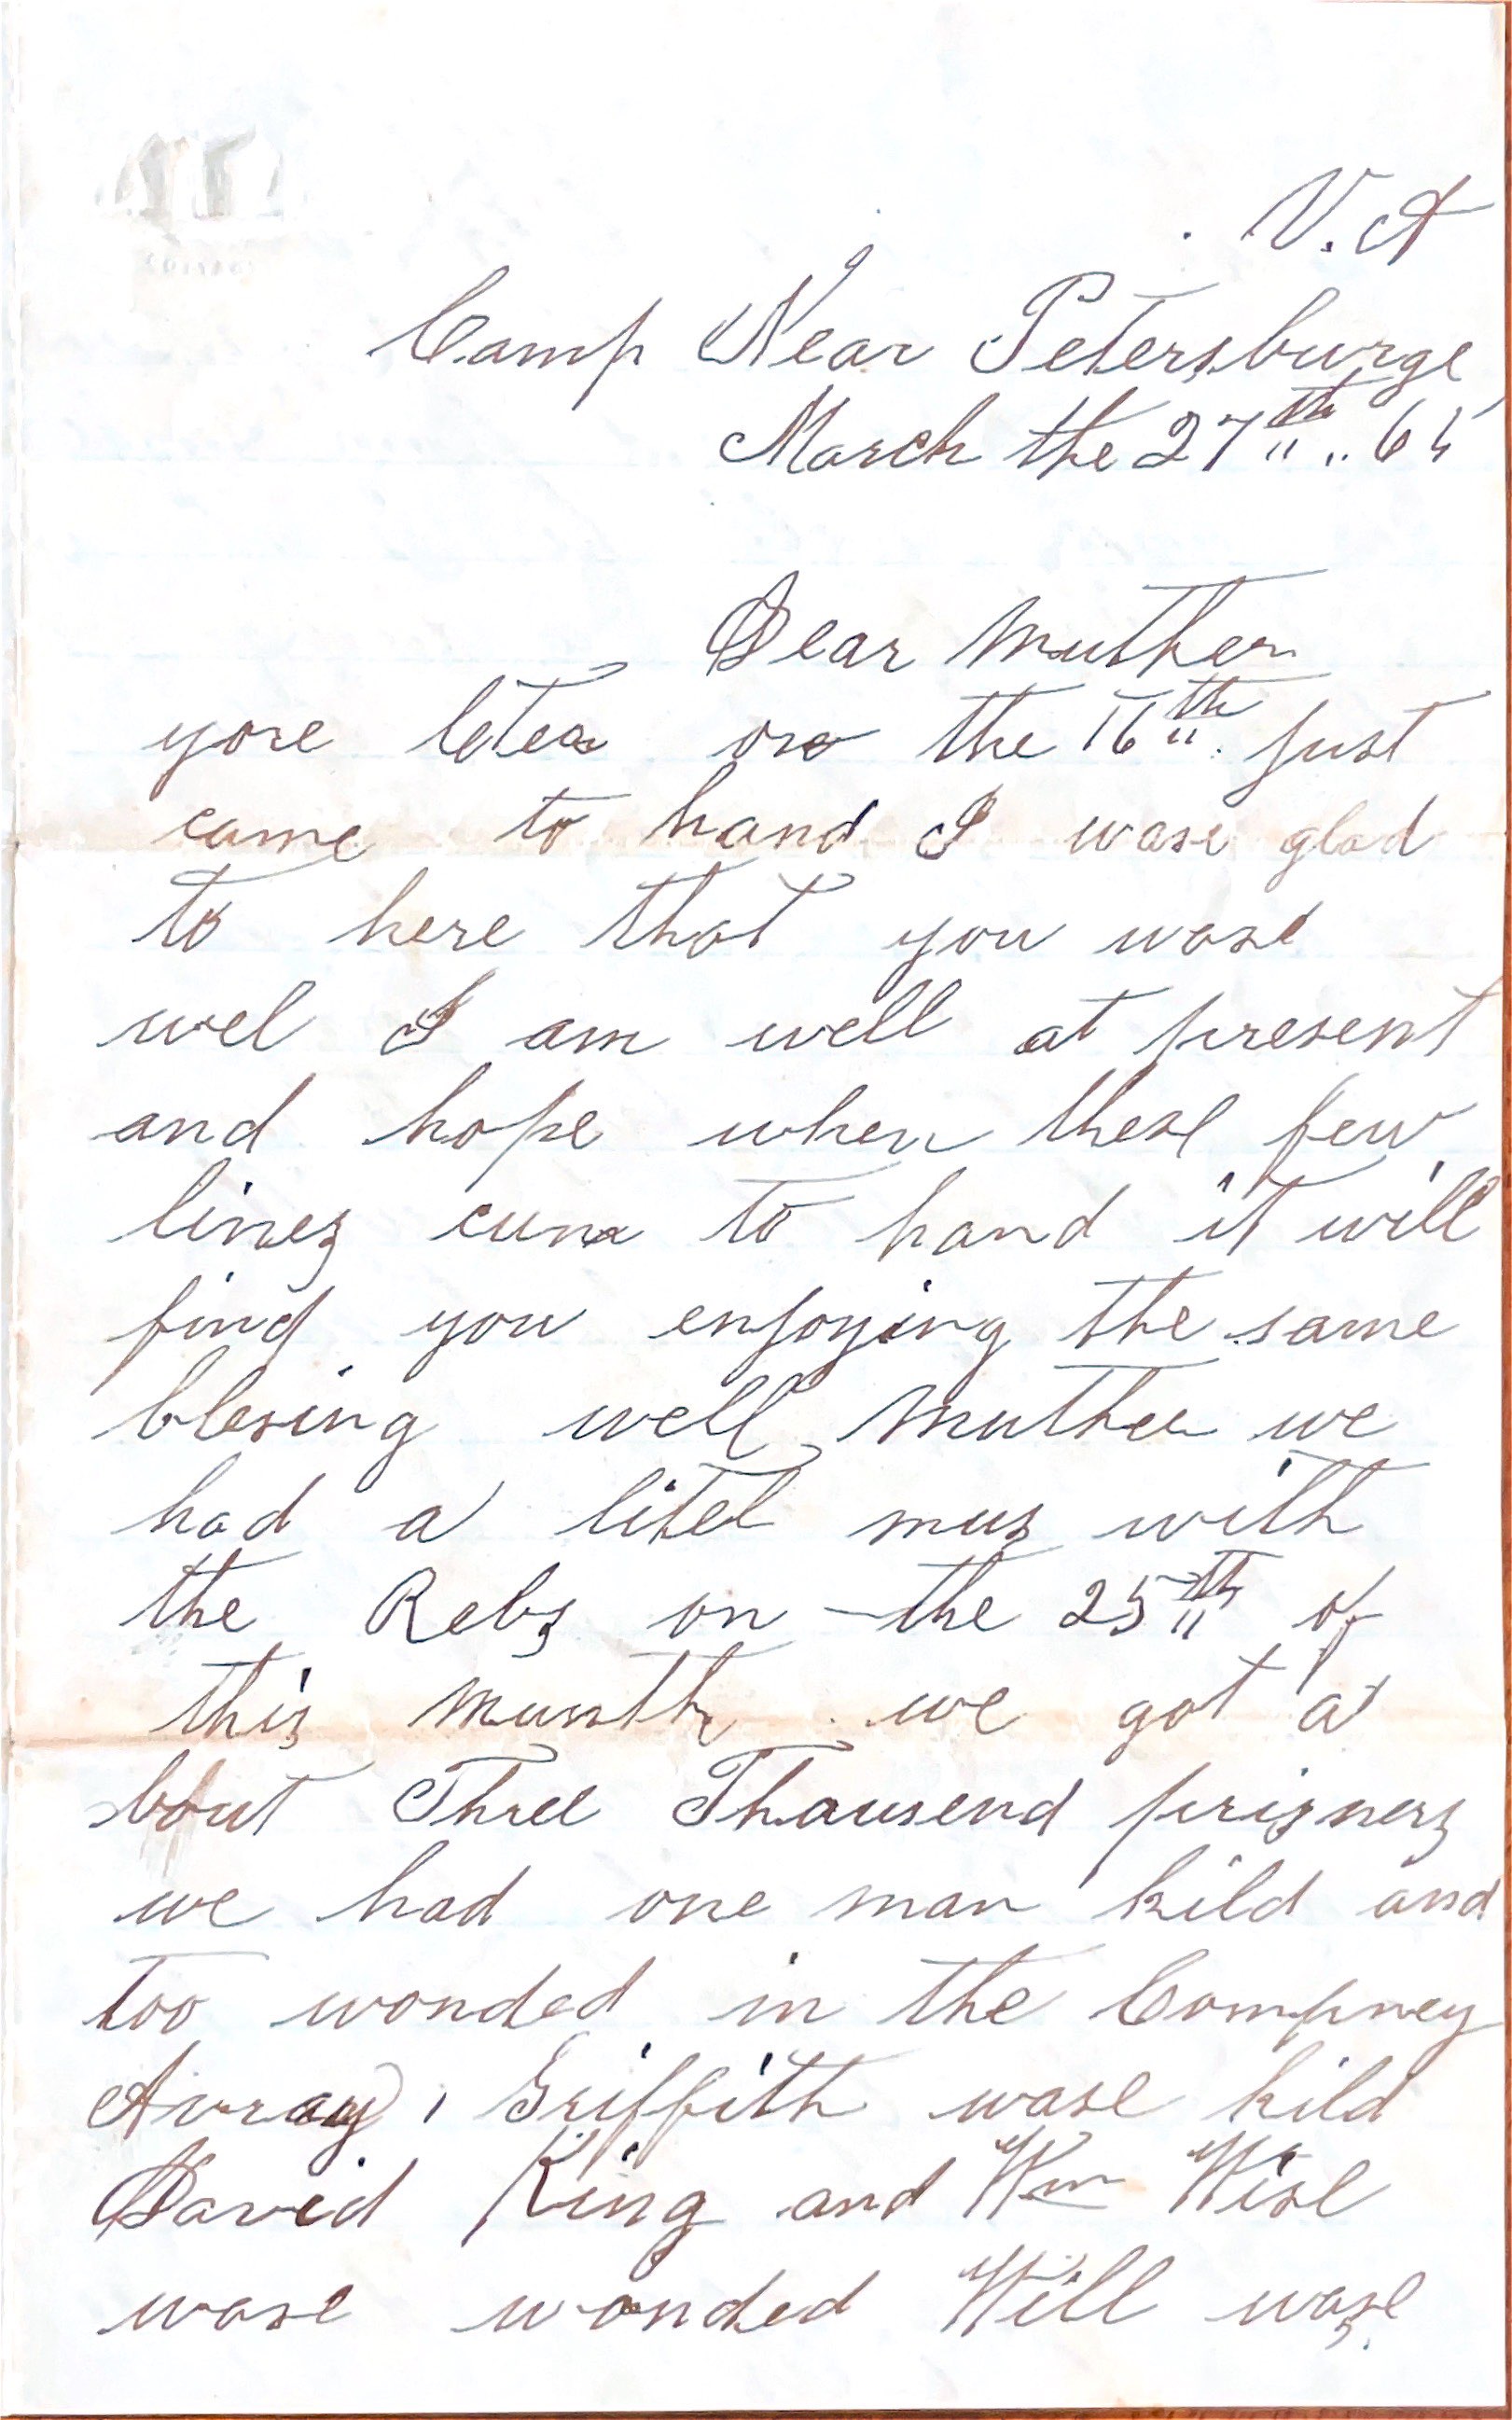 V. A
Camp Near Petersburge
March the 27th .. 65
Dear Muther
yore leter on the 16th. just
came to hand I wase glad
to here that you wase
wel I am well at present
and hope when these few
lines cum to hand it will
find you enjoying the same
blesing well Muther we
had a litel mus with
the Rebs on the 25th of
this munth we got a
bout Three Thausend prisners
we had one man kild and
too wonded in the Compney
Avray, Griffith wase kild
David King and Wm Wise
wase wonded Will wase